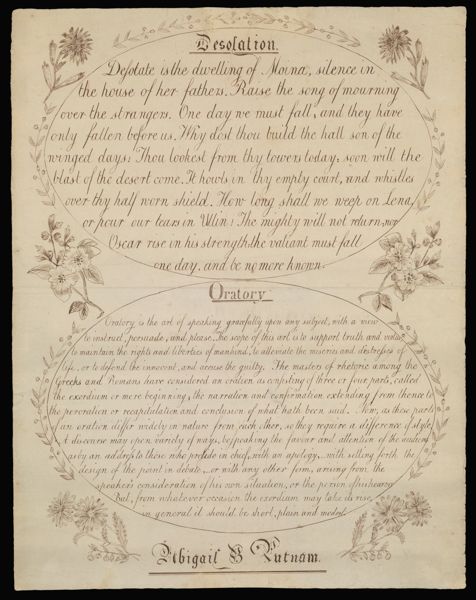 Desolation.
Desolate is the dwelling of Moina, silence in
the house of her fathers. Raise the song of mourning
over the strangers. One day we must fall, and they have
only fallen before us. Why dost thou build the hall son of the
winged days: Thou lookest from thy towers today; soon will the
blast of the desert come. It howls in thy empty court, and whistles
over thy half worn shield. How long shall we weep on Lena,
or pour our tears in Ullin! The mighty will not return, nor
Oscar rise in his strength. the valiant must fall
one day, and be no more known.
Oratory
Oratory is the art of speaking gracefully upon any subject, with a view
to instruct, persuade, and please. The scope of this art is to support truth and virtue
to maintain the rights and liberties of mankind, to alleviate the miseries and destresses of
life, or to defend the innocent, and accuse the guilty. The masters of rhetoric among the
Greeks and Romans have considered an oration as consisting of three or four parts, called
the exordium or mere beginning, the narration and confirmation extending from thence to
the peroration or recapitulation and conclusion of what hath been said. Now, as these parts
an oration differ widely in nature from each other, so they require a difference of style.
A discourse may upon variety of ways, bespeaking the favour and attention of the audience
as by an address to those who preside in chief, with an apology, with setting forth the
design of the point in debate, or with any other form, arising from the
speaker's consideration of his own situation, or the person of his hearers
But, from whatever occasion the exordium may take its rise,
in general it should be short, plain and modest
Abigail B Putnam.